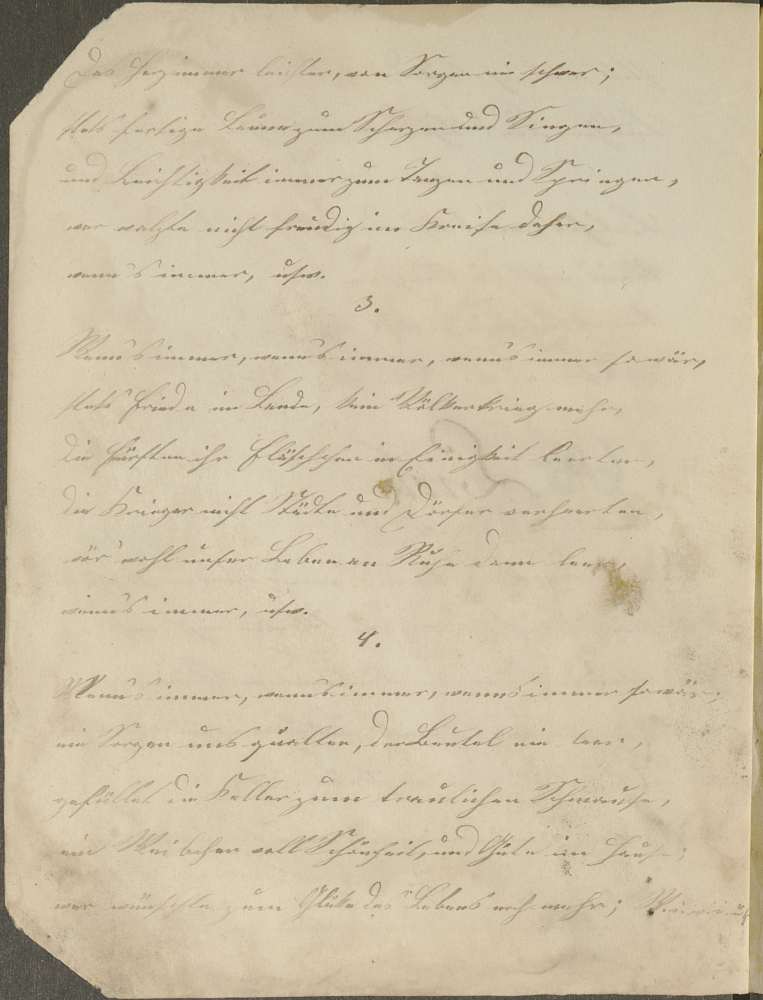 Das Herz immer leichter, von Sorgen nie schwer;
stets fertige Laune zum Scherzen und Singen,
und Leichtigkeit immer zum Tanzen und Springen,
wer walzte nicht freudig im Kreise daher,
wenn's immer, usw.
3.
Wenn's immer, wenn's immer, wenn's immer so wär,
stets Friede im Lande, kein Völkerkrieg mehr,
die Fürsten ihr Fläschchen in Einigkeit leerten,
die Krieger nicht Städte und Dörfer verheerten,
wär wohl unser Leben an Ruhe dann leer,
wenn's immer, usw.
4.
Wenn's immer, wenn's immer, wenn's immer so wär;
nie Sorgen uns quälten, der Beutel nie leer,
gefüllet die Keller zum traulichen Schmause,
ein Weibchen voll Schönheit, und Güte im Hause;
wer wünschte zum Glücke des Lebens noch mehr;